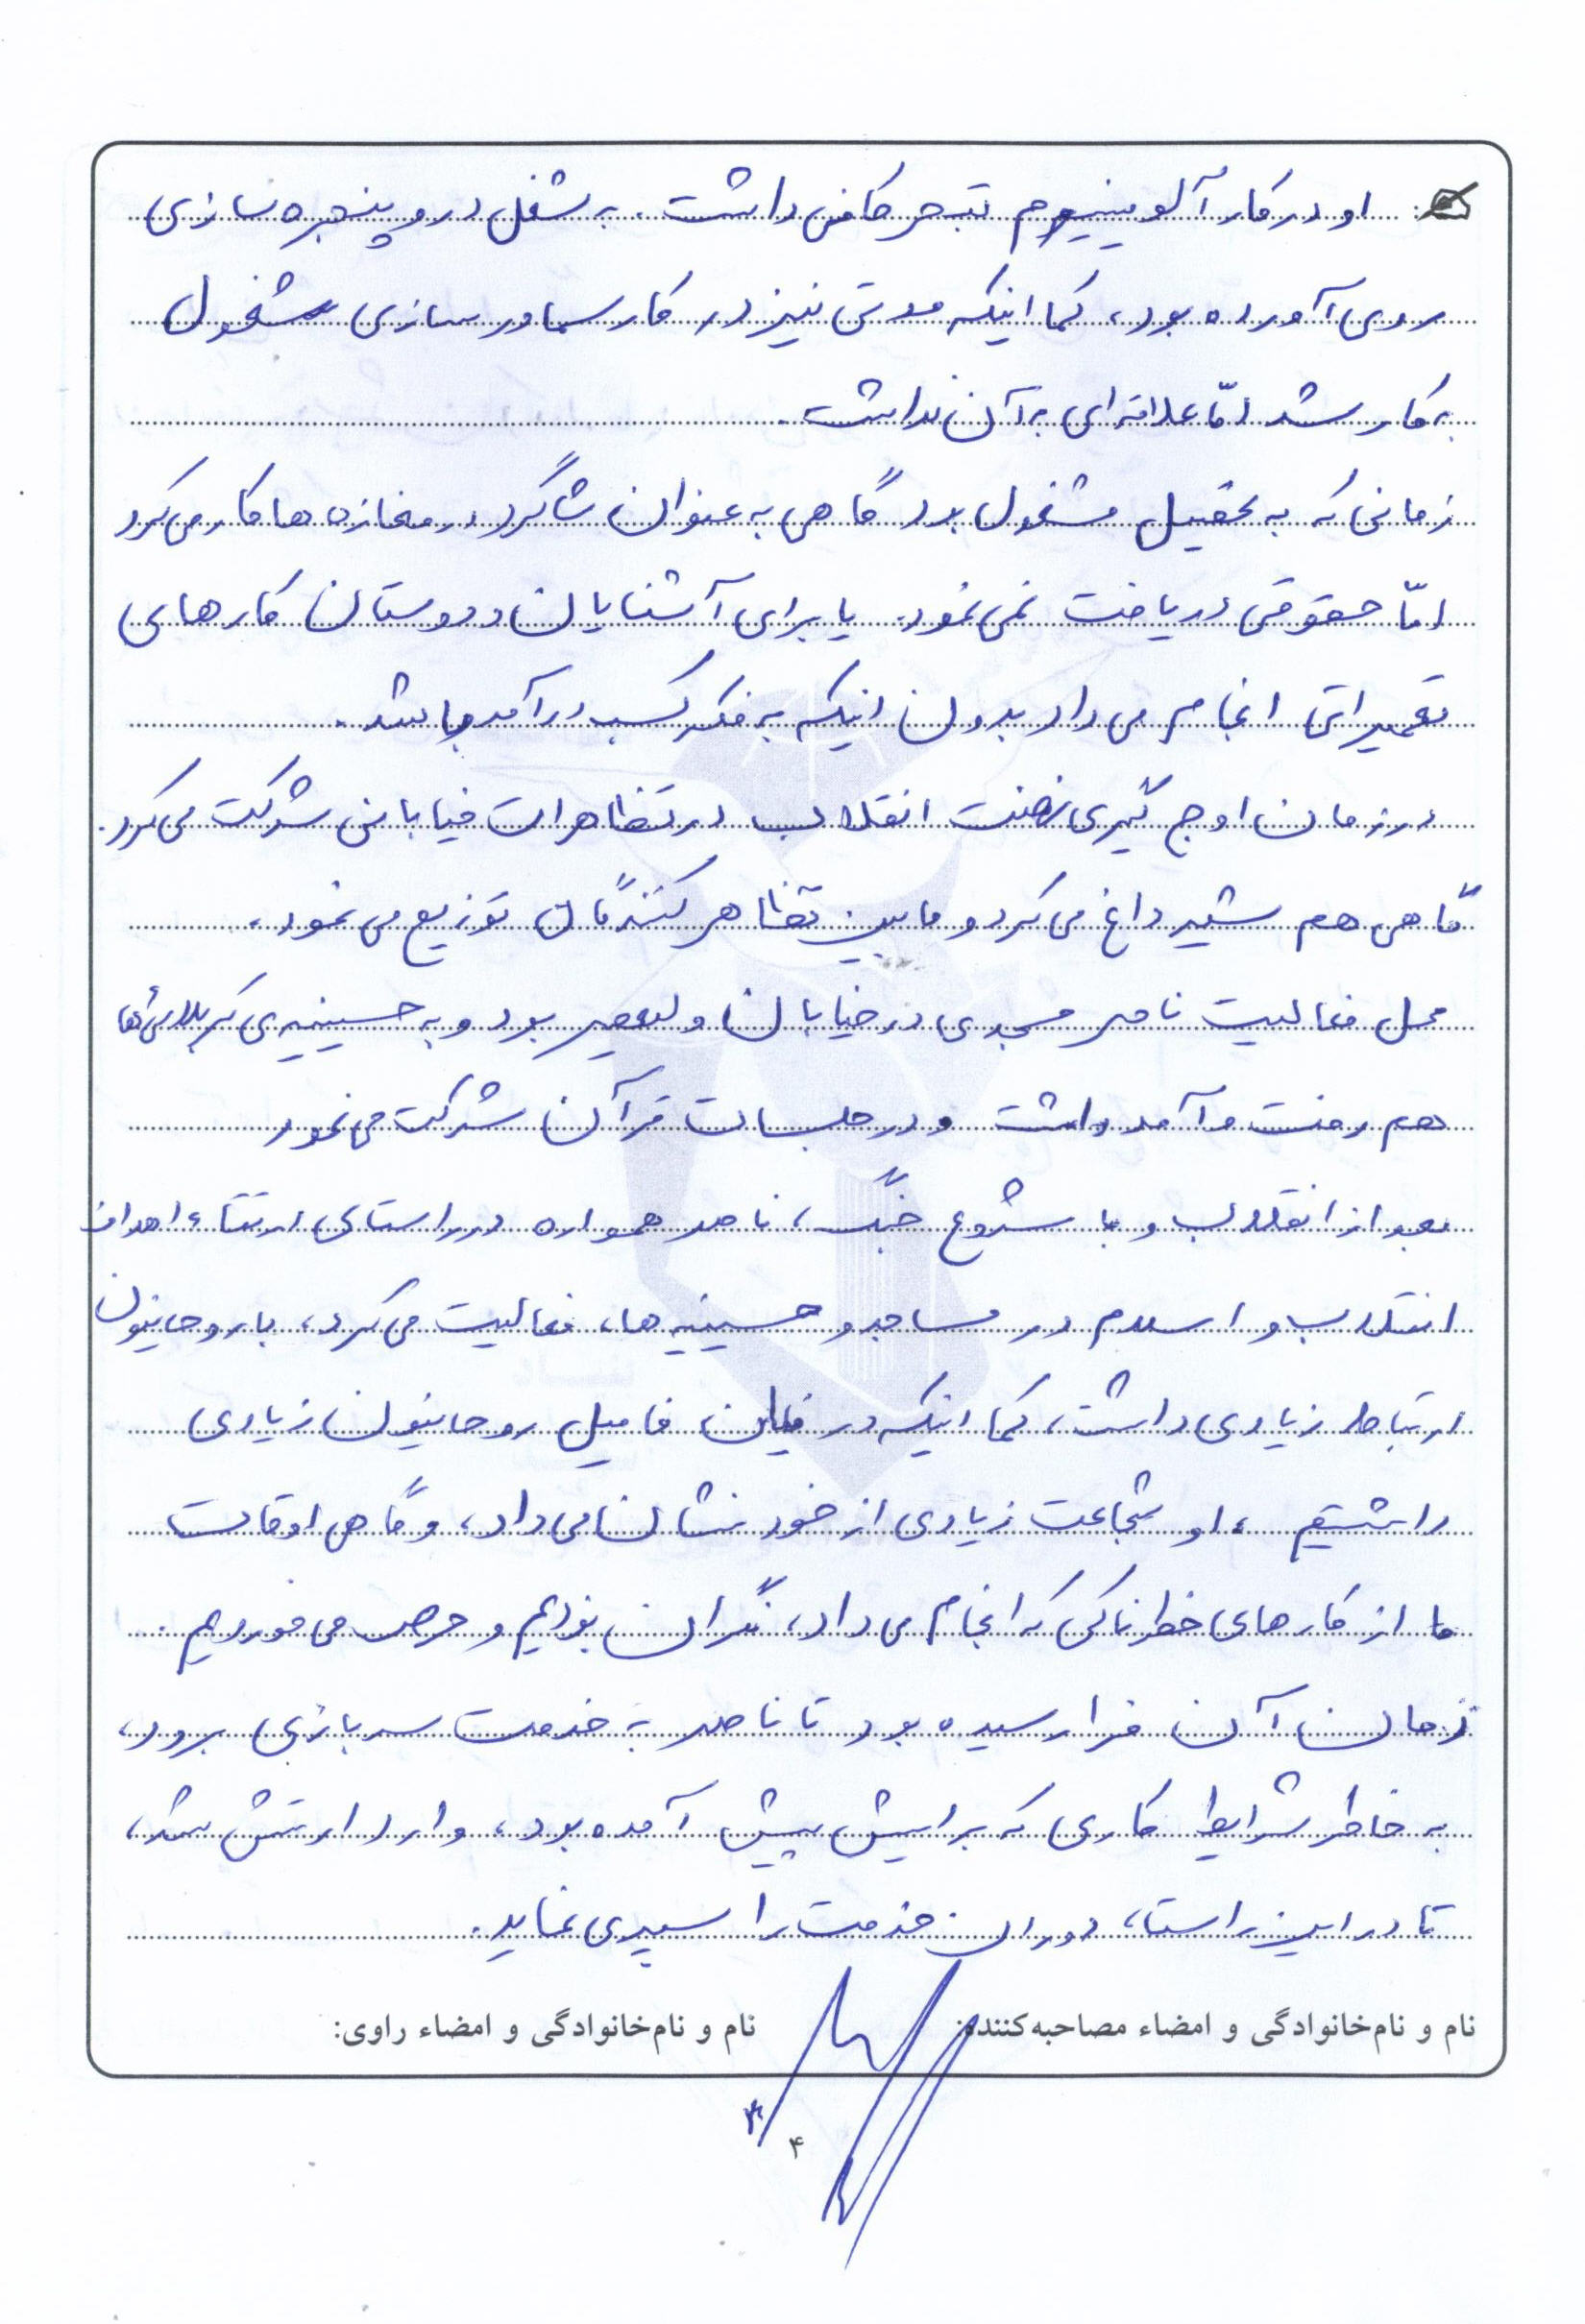 او در کار آلومینیوم تبحر کافی داشت. به شغل در و پنجره سازی
روی آورده بود، کما اینکه مدتی نیز در کار سماور سازی مشغول
به کار شد امّا علاقه ای به آن نداشت.
زمانی که به تحصیل مشغول بود گاهی به عنوان شاگرد در مغازه ها کار می کرد
امّا حقوقی دریافت نمی نمود. یا برای آشنایان و دوستان کارهای
تعمیراتی انجام می داد بدون اینکه به فکر کسب درآمد باشد.
در زمان اوج گیری نهضت انقلاب در تظاهرات خیابانی شرکت می کرد.
گاهی هم شیر داغ می کرد و مابین تظاهر کنندگان توزیع می نمود.
محل فعالیت ناصر مسجدی در خیابان ولیعصر بود و به حسینیه ی کربلائی ها
هم رفت و آمد داشت و در جلسات قرآن شرکت می نمود
بعد از انقلاب و با شروع جنگ، ناصر همواره در راستای ارتقاء اهداف
انقلاب و اسلام در مساجد و حسینیه ها، فعالیت می کرد، با روحانیون
ارتباط زیادی داشت، کما اینکه در فامیل روحانیون زیادی
داشتیم، او شجاعت زیادی از خود نشان می داد، و گاهی اوقات
ما از کارهای خطرناکی که انجام می داد، نگران بودیم و حرص می خوردیم.
زمان آن فرا رسیده بود تا ناصر به خدمت سربازی برود،
به خاطر شرایط کاری که برایش پیش آمده بود، وارد ارتش شد،
تا در این راستا، دوران خدمت را سپری نماید.
نام و نام‌خانوادگی و امضاء مصاحبه‌کننده: نام و نام‌خانوادگی و امضاء راوی:
۴